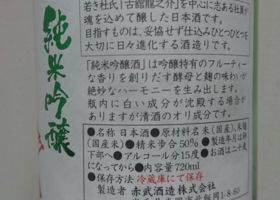 若き杜氏「古舘龍之介」を中心に志ある社員が
魂を込めて醸した日本酒です。
目指すものは、妥協せず仕込みひとつひとつを
大切に日々進化する酒造りです。
「純米吟醸酒」は吟醸香特有のフルーティー
な香りを創りだす酵母と麹の味わいが
絶妙なハーモニーを生み出します。
瓶内に白い成分が沈殿する場合が
ありますが清酒のオリ成分です。
純米吟醸
●名称 日本酒●原材料名 米(国産米)、米麹
(国産米)●精米歩合 50%●製造年月は枠
下部へ●アルコール分15度●お酒は二十歳
になってから●内容量720ml
●保存方法 冷蔵庫にて保存
製造者 赤武酒造株式会社
1-8-60